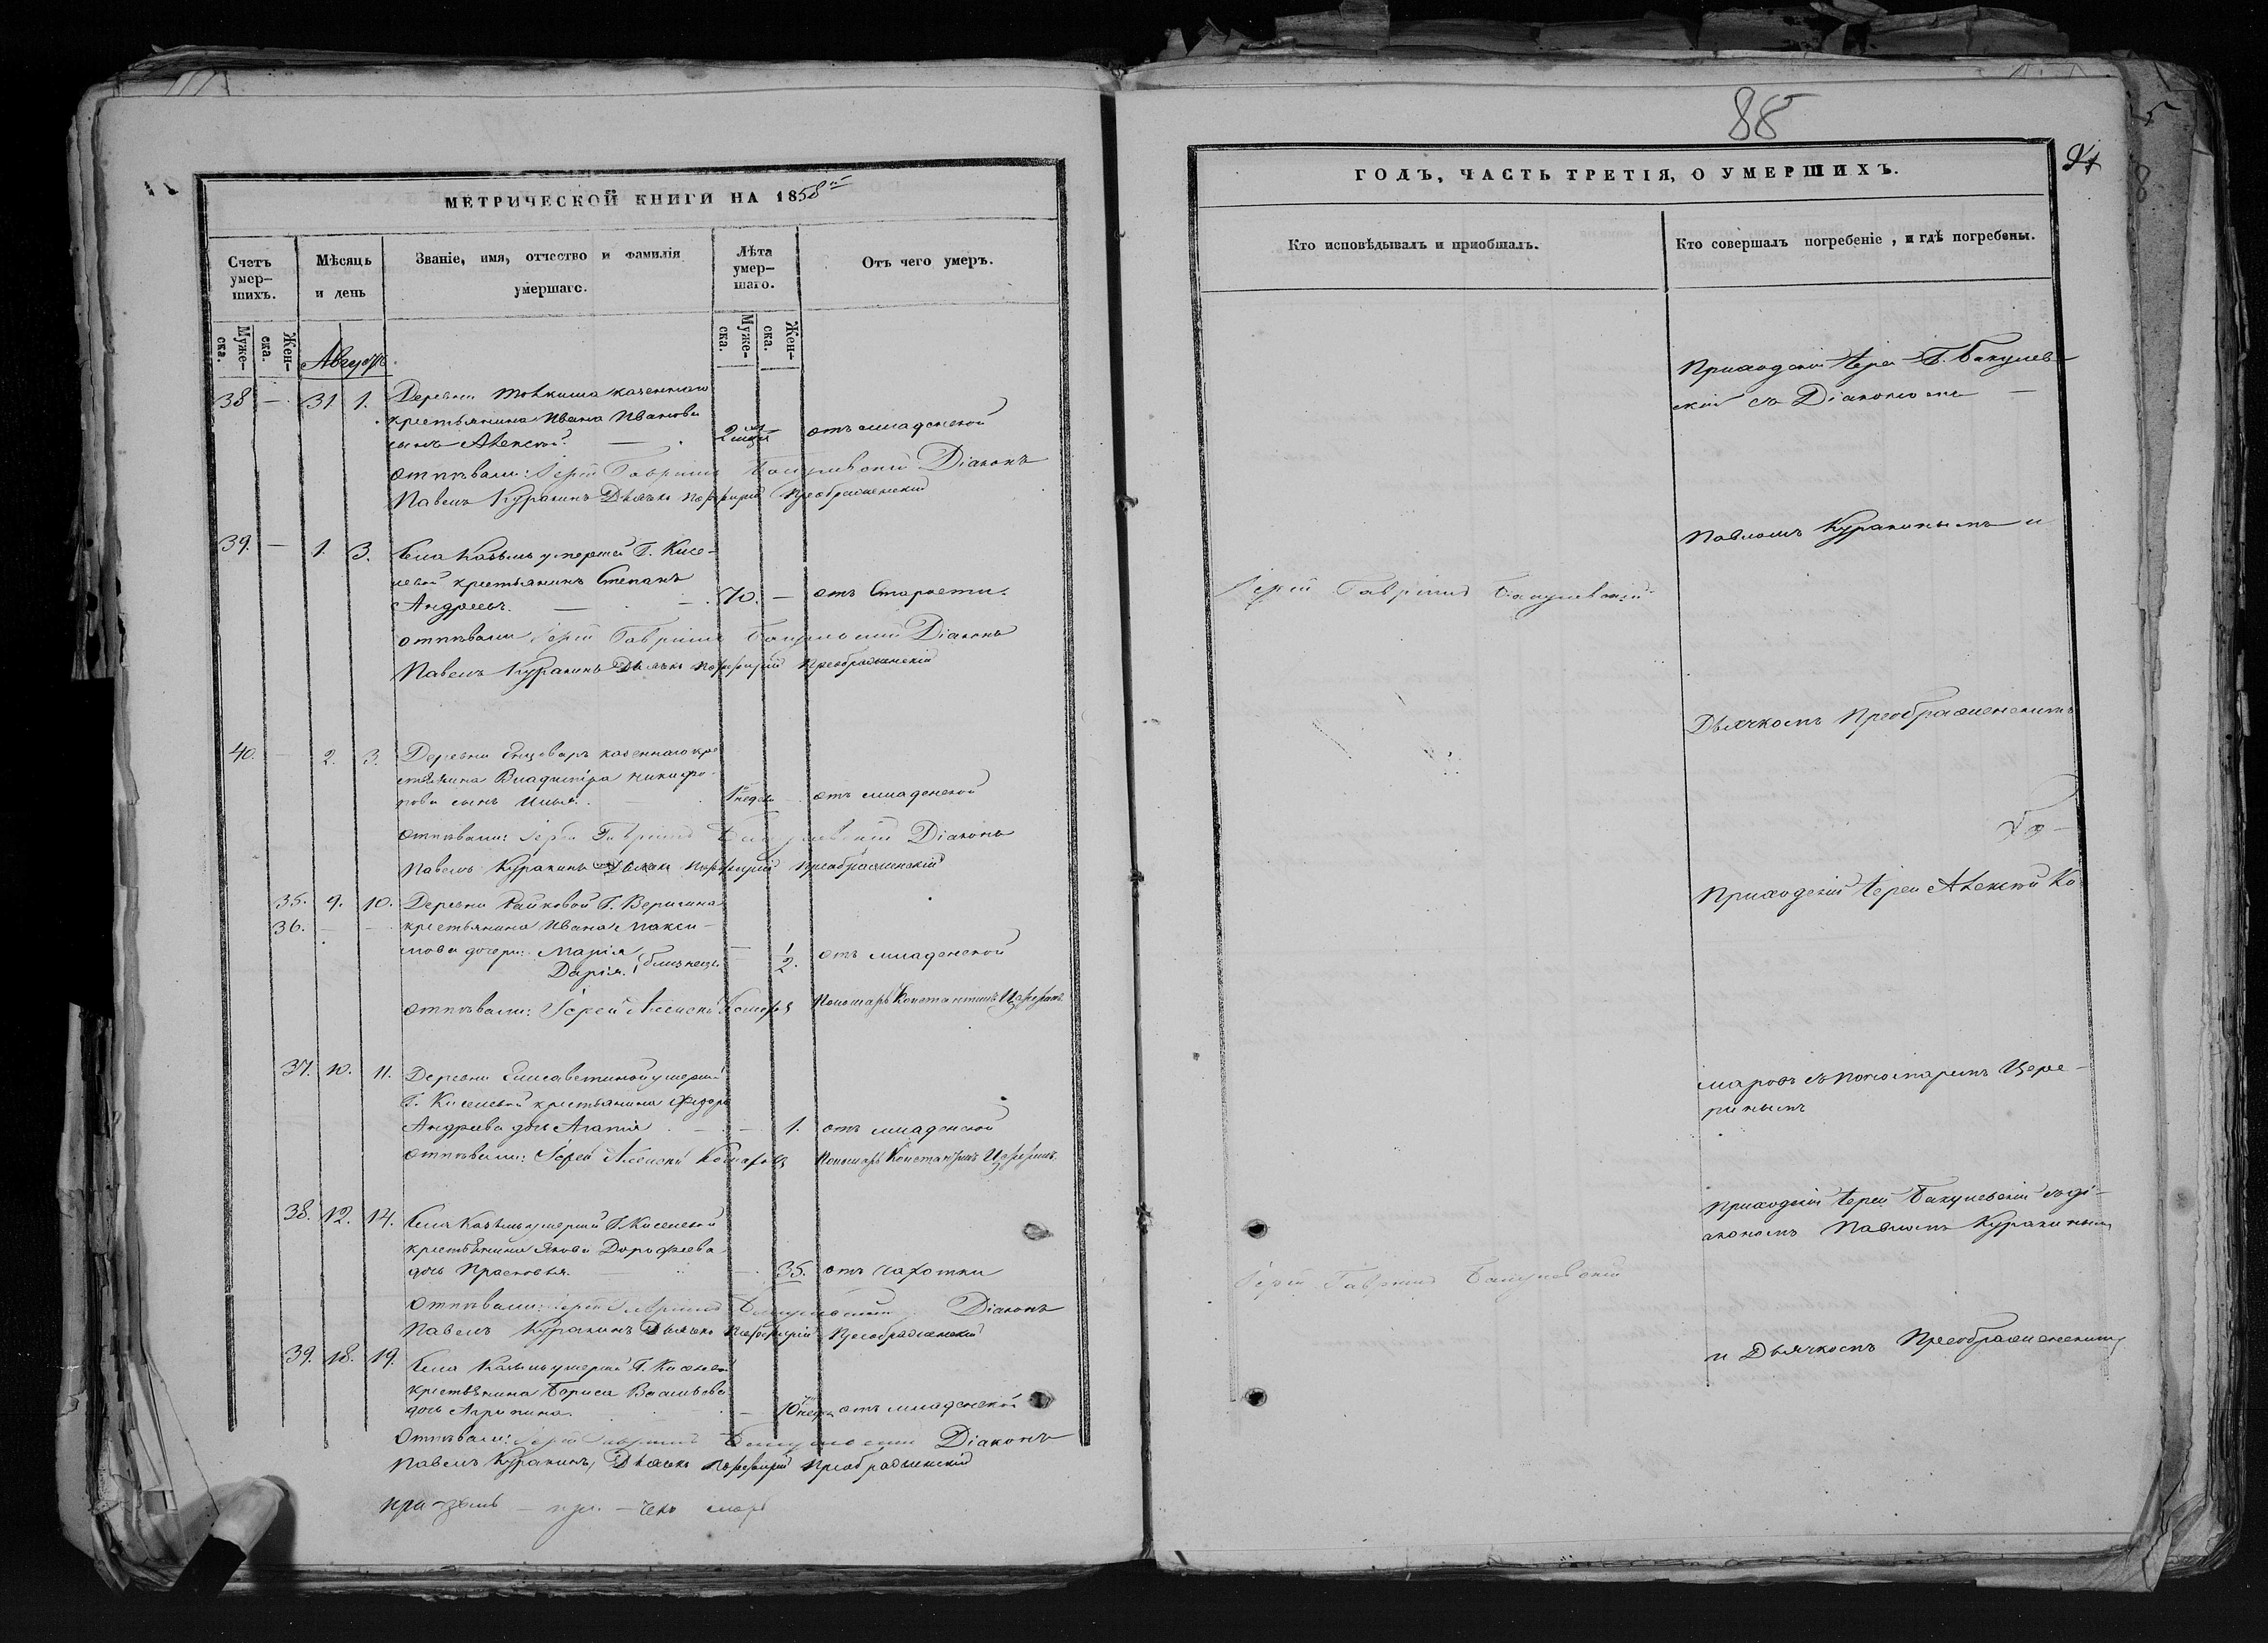 МЕТРИЧЕСКОЙ КНИГИ НА 1858й
Счетъ умер–шихъ.
Мѣсяцъ и день
Званіе, имя, отчество и фамилія умершаго.
Лѣта умер–шаго.
Отъ чего умеръ.
Муже–ска.
Жен–ска.
Августъ.
Муже–ска.
Жен–ска.
38 — 31 1. Деревни казеннаго
крестьянина Ивана Иванова
сынъ Алексѣй. 2 отъ младенской
отпѣвали: Іерей Гавріилъ Бакулевскій Діаконъ
Павелъ Куракинъ Дьячекъ Порфирій Преображенскій
39. — 1. 3. Села Козьмъ умершей Г. Кисе–
левой крестьянинъ Степанъ
Андреевъ. 70. — отъ Старости.
отпѣвали Іерей Гавріилъ Бакулевскій Діаконъ
Павелъ Куракинъ Дьячекъ Порфирій Преображенскій
40. — 2. 3. Деревни казеннаго кре
стьянина Владиміра Никифо–
рова сынъ Илья. отъ младенской
отпѣвали: Іерей Гавріилъ Бакулевскій Діаконъ
Павелъ Куракинъ Дьячекъ Порфирій Преображенскій
35. 9. 10. Деревни Г. Веригина
36. — — крестьянина Ивана Макси–
мова дочери: Марія
Дарія. близнецы — 1/2. отъ младенской
отпѣвали: Іерей Алексѣй Комаровъ Пономарь Константинъ
37. 10. 11. Деревни Елисаветиной умершей
Г. Киселевой крестьянина Федора
Андреева дочь Агапія — 1. отъ младенской
отпѣвали: Іерей Алексѣй Комаровъ Пономарь Константинъ
38. 12. 14. Села Козьмъ умершей Г. Киселевой
крестьянина Якова Дорофеева
дочь Прасковья. — 35. отъ чахотки
Отпѣвали: Іерей Гавріилъ Бакулевскій Діаконъ
Павелъ Куракинъ Дьячекъ Порфирій Преображенскій
39. 18. 19. Села Козьмъ умершей Г. Киселевой
крестьянина Бориса Васильева
дочь Агрипина. — 10 отъ младенской
Отпѣвали: Іерей Гавріилъ Бакулевскій Діаконъ
Павелъ Куракинъ, Дьячекъ Порфирій Преображенскій
88
ГОДЪ, ЧАСТЬ ТРЕТІЯ, О УМЕРШИХЪ.
Кто исповѣдывалъ и пріобщалъ.
Кто совершалъ погребеніе, и гдѣ погребены.
Приходскій Іерей Г. Бакулев–
скій съ Діакономъ —
Павломъ Куракинымъ и
Іерей Гавріилъ Бакулевскій
Дьячкомъ Преображенскимъ
Приходскій Іерей Алексѣй Ко–
маровъ съ пономаремъ Цере–
ринымъ
Приходскій Іерей Бакулевскій съ Ді–
акономъ Павломъ Куракинымъ
Іерей Гавріилъ Бакулевскій
и Дьячкомъ Преображенскимъ